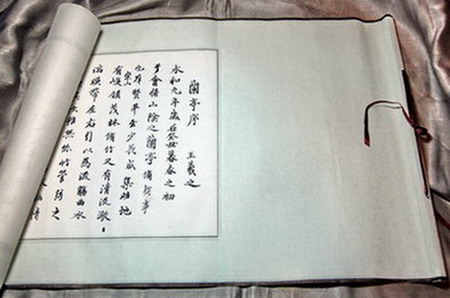 蘭亭序
王羲之
永和九年歲在癸丑暮春之初
于會稽山陰之蘭亭脩禊事
也群賢畢至少長咸集此地
有崇山峻領茂林脩竹又有清流激
湍暎帶左右引以為流觴曲水
其次雖無絲竹管弦之
幽情